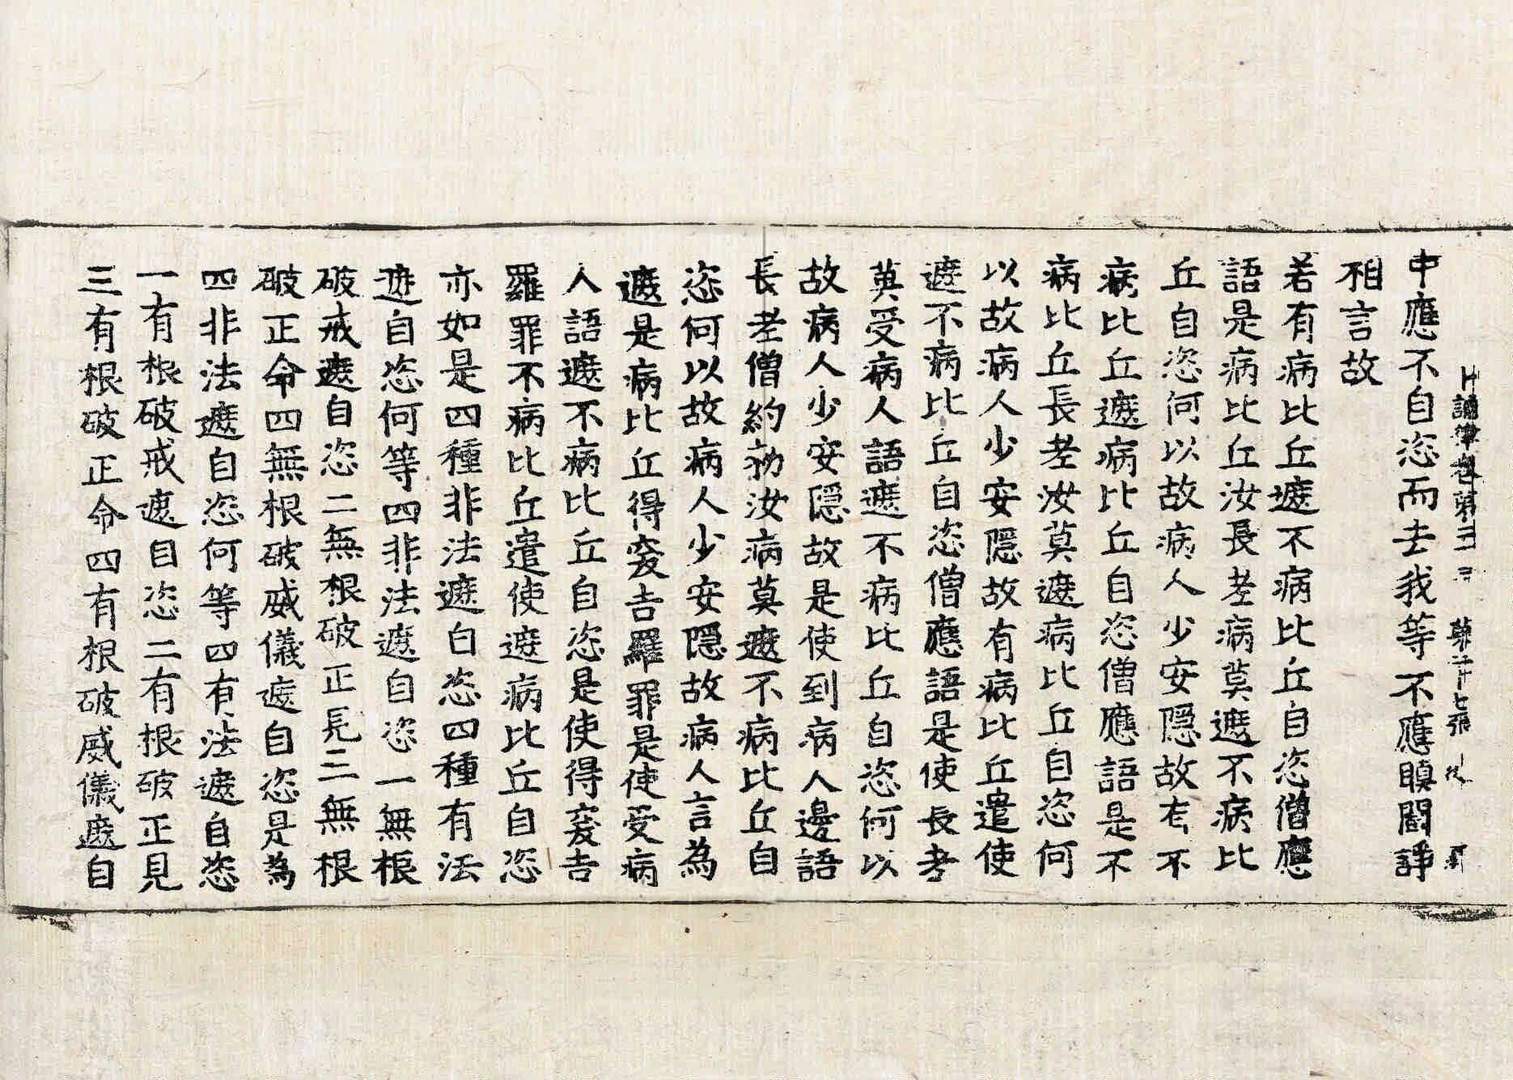 十誦律卷第二三 第十七張
中應不自恣而去我等不應瞋鬪諍
相言故
若有病比丘遮不病比丘自恣僧應
語是病比丘汝長老病莫遮不病比
丘自恣何以故病人少安隱故有不
病比丘遮病比丘自恣僧應語是不
病比丘長老汝莫遮病比丘自恣何
以故病人少安隱故有病比丘遣使
遮不病比丘自恣僧應語是使長老
莫受病人語遮不病比丘自恣何以
故病人少安隱故是使到病人邊語
長老僧約勑汝病莫遮不病比丘自
恣何以故病人少安隱故病人言為
遮是病比丘得突吉羅罪是使受病
人語遮不病比丘自恣是使得突吉
羅罪不病比丘遣使遮病比丘自恣
亦如是四種非法遮自恣四種有法
遮自恣何等四非法遮自恣一無根
破戒遮自恣二無根破正見三無根
破正命四無根破威儀遮自恣是為
四非法遮自恣何等四有法遮自恣
一有根破戒遮自恣二有根破正見
三有根破正命四有根破威儀遮自